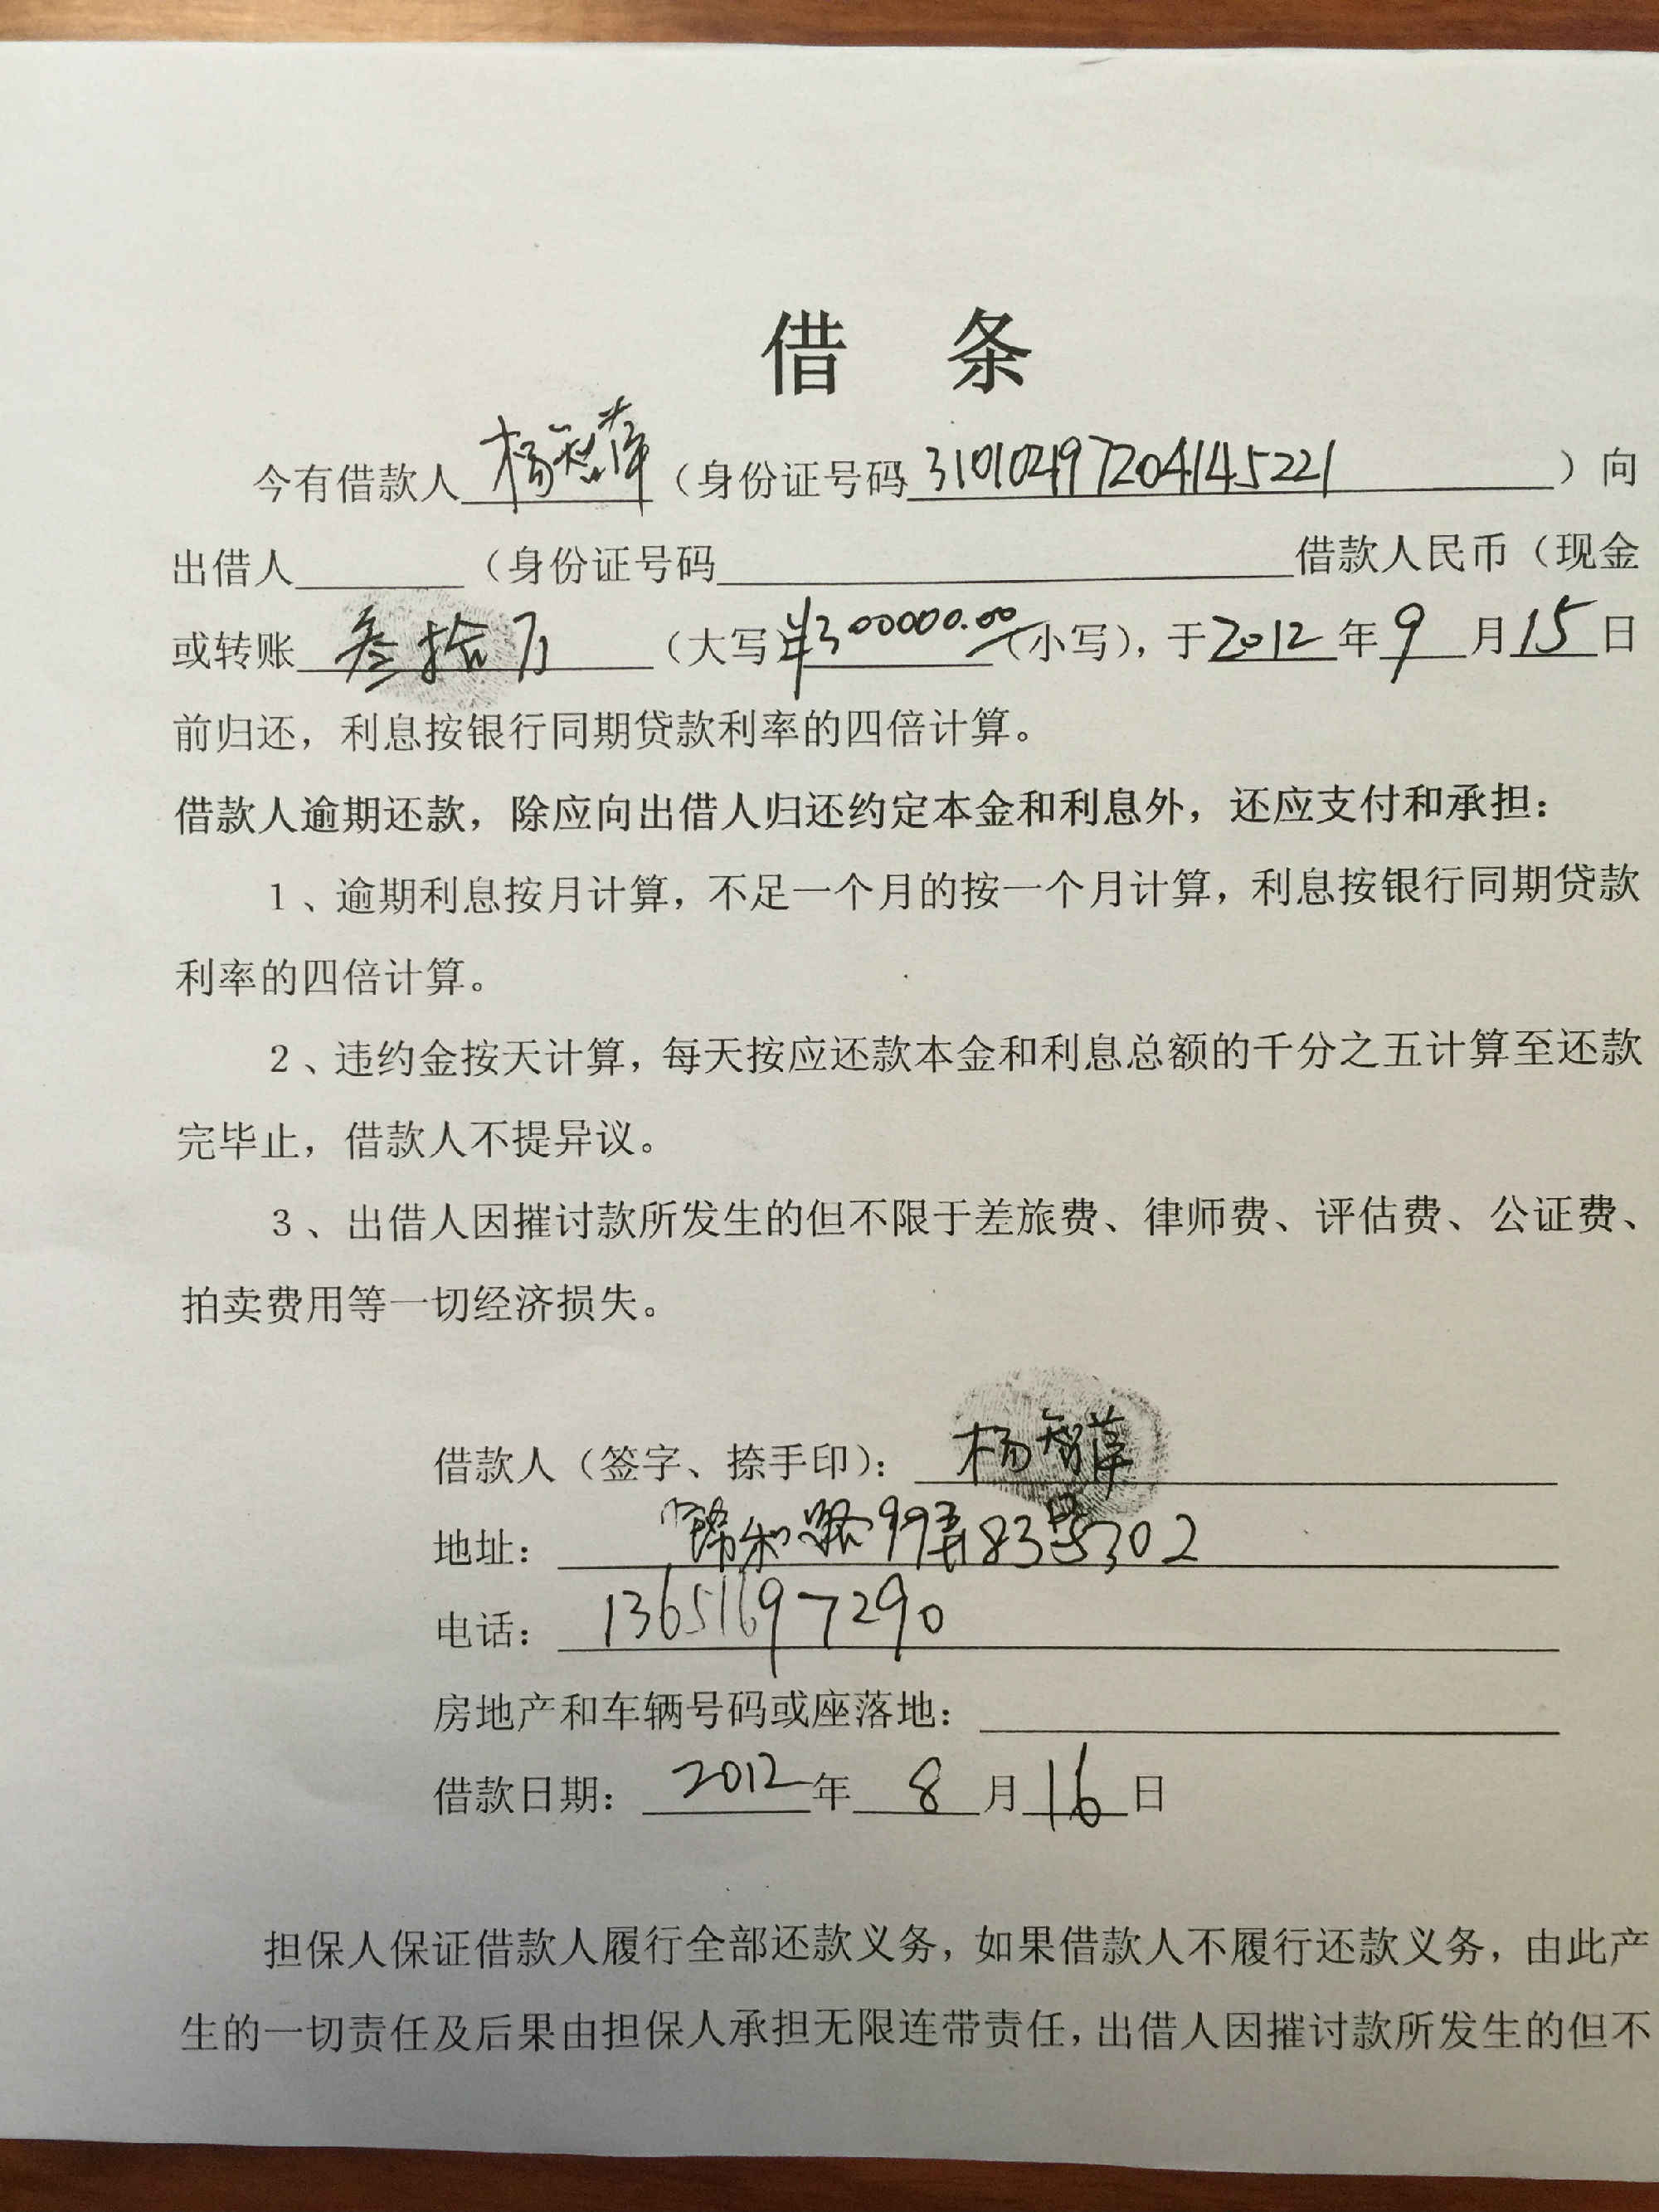 借 条
今有借款人杨智萍（身份证号码310102197204145221）向
出借人（身份证号码借款人民币（现金
或转账叁拾万（大写）¥300000.00（小写），于2012年9月15日
前归还，利息按银行同期贷款利率的四倍计算。
借款人逾期还款，除应向出借人归还约定本金和利息外，还应支付和承担：
1、逾期利息按月计算，不足一个月的按一个月计算，利息按银行同期贷款
利率的四倍计算。
2、违约金按天计算，每天按应还款本金和利息总额的千分之五计算至还款
完毕止，借款人不提异议。
3、出借人因摧讨款所发生的但不限于差旅费、律师费、评估费、公证费、
拍卖费用等一切经济损失。
借款人（签字、捺手印）：杨智萍
地址：锦和路99弄83号302
电话：13651697290
房地产和车辆号码或座落地：
借款日期：2012年8月16日
担保人保证借款人履行全部还款义务，如果借款人不履行还款义务，由此产
生的一切责任及后果由担保人承担无限连带责任，出借人因摧讨款所发生的但不